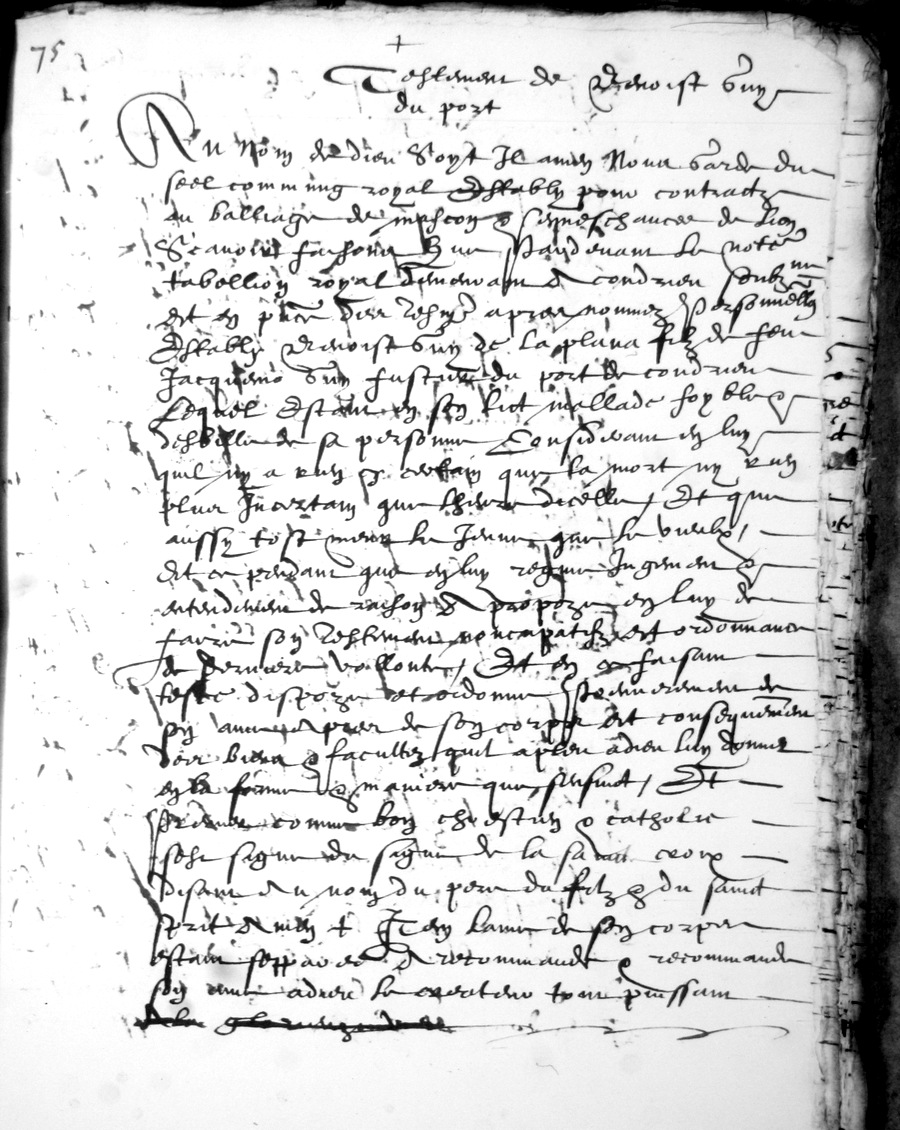 75
+
Testement de Benoist Guy
du port
Au Nom de dieu Soyt Il amen Nous Garde du
seel commung royal Establÿ pour contractz
au balliage de mascon & senneschaucee de lion
Scavoir faisons Que Pardevant le notere
tabellion royal demeurant A condrieu soubzne
et en pnce des tesmg apres nommez Personnellement
Establÿ Benoist Guy de la plana filz de feu
Jacquemo Guy fustier du port de condrieu
Lequel Estant en son lict mallade foyble &
debille de sa personne Considerant en luy
quil ny a rien si certain que la mort ny rien
plus Incertain que lheure dicelle / Et que
aussy tost meur le Jeune que le vieulx /
Et ce pendant que en luy regne Jugement &
entendement de raison A propoze en luy de
faire son testement noncupatifz et ordonnance
de derniere vollonte / Et en ce faisant
teste dispoze et ordonne Premierement de
son ame apres de son corps et consequemment
des biens & facultez quil a pleu a dieu luy donner
en la forme & maniere que sensuict / Et
Premier comme bon chrestien & catholic
sest signe du signe de la saincte croix
disant Au nom du pere du filz & du sainct
sprit Amen + Item lame de son corps
estant sepparee A recommande & recommande
son ame a dieu le createur tout puissant